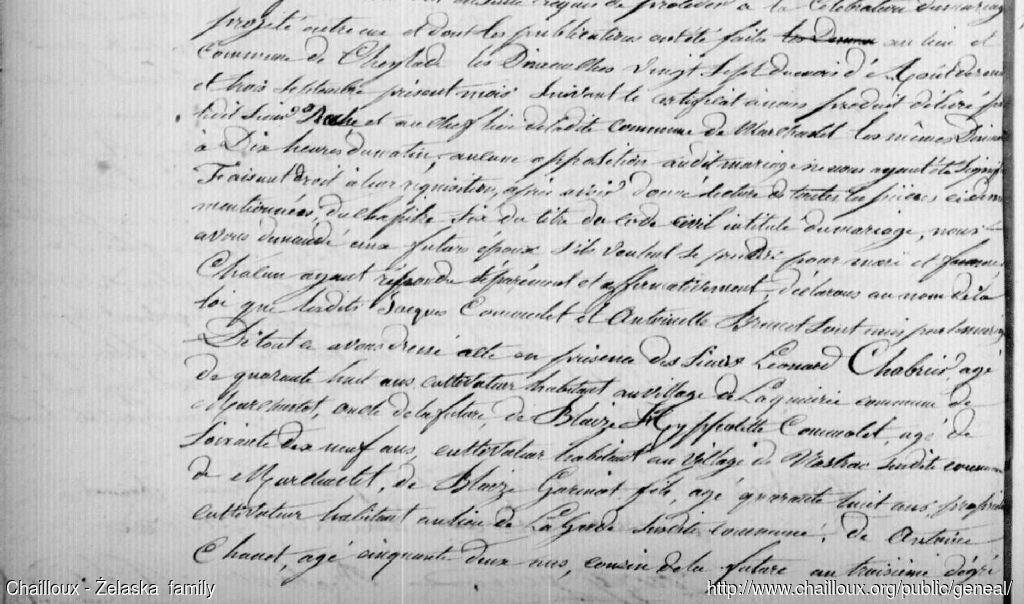 de procéder à la célébration du mariage
projeté entre eux et dont les publications ont été faites au lieu et
commune de Cheylade les Dimanches vingt sept du mois d'Août dernier
et trois septembre présent mois suivant le certificat à nous produit délivré
et au chef lieu de ladite commune de Marchastel les mêmes
à Dix heures du matin, aucune opposition audit mariage ne nous ayant été
Faisant droit à leur réquisition, après avoir donné lecture de toutes les pièces
mentionnées, du chapitre six du titre du code civil intitulé du mariage, nous
avons demandé aux futurs époux s'ils veulent se prendre pour mari et femme
Chacun ayant répondu séparément et affirmativement, déclarons au nom de la
loi que lesdits Jacques Commolet et Antoinette sont unis par le mariage
De tout ce avons dressé acte en présence des sieurs Léonard Chabrier, agé
de quarante huit ans cultivateur habitant au village de commune de
oncle de la future, de Blaize Hyppolitte Commolet, agé de
soixante dix neuf ans, cultivateur habitant au village de susdite commune
de Marchastel, de Blaize fils, agé quarante huit ans
cultivateur habitant au lieu de susdite commune, de Antoine
Chauet, agé cinquante deux ans, cousin de la future au troisième dégré
Chailloux - Želaska family
http://www.chailloux.org/public/geneal/